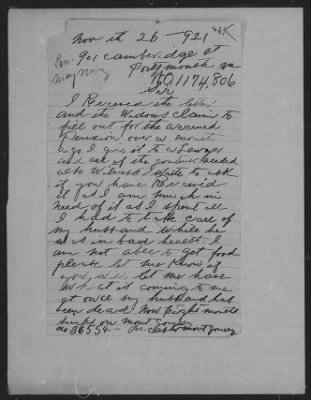 Nov th 26 - 921
Pen. 901 Cambridge st
Portsmouth va
W.O. 1174,806
Sir
I Received the letter
and the Widows claim to
fill out for the accrued
Pension over a month
ago I give it to a Lawyer
and all of the
also Witness I Wrote to ask
if you have Received
it for I am much in
need of it as I spent all
I had to take care of
my husband While he
was in bad health. I
am not able to get food
please let me know if
you, let me have
What it is coming to me
at once my husband has
been dead Now Eight months
Montgomery
no 36554 - Montgomery